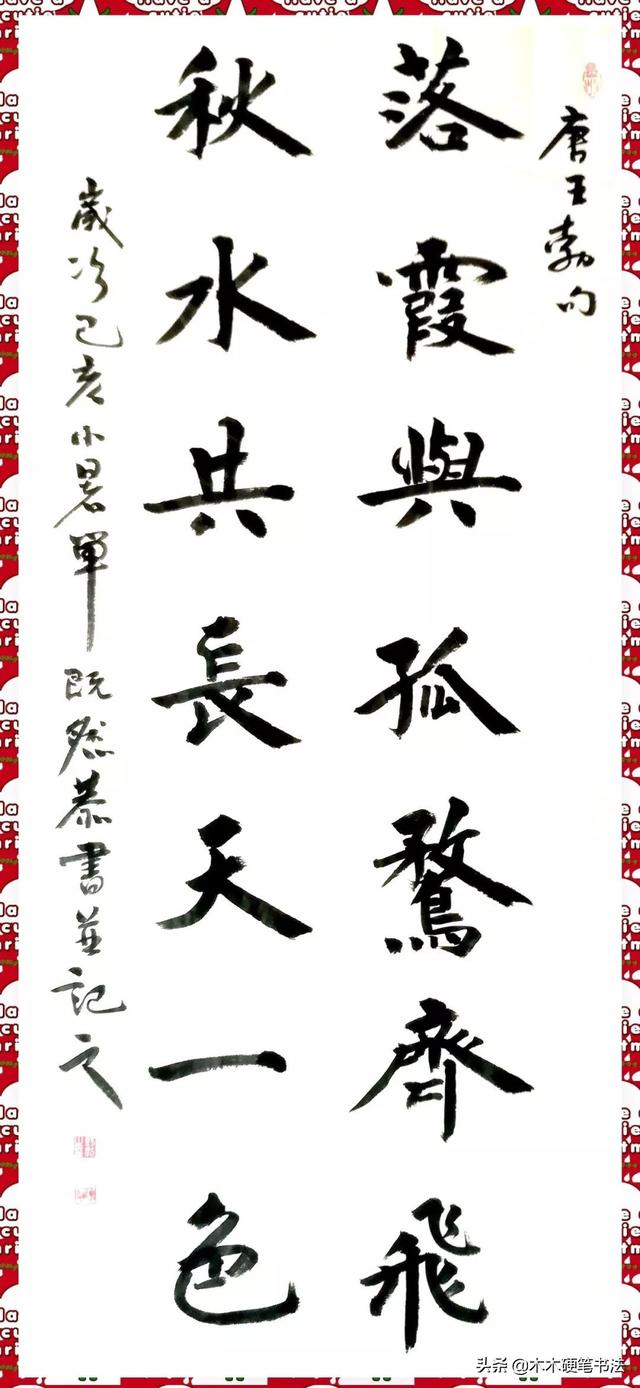 唐王勃句
落霞與孤鶩齊飛
秋水共長天一色
歲次己亥小暑單既然恭書並記之
头条@木木硬笔书法